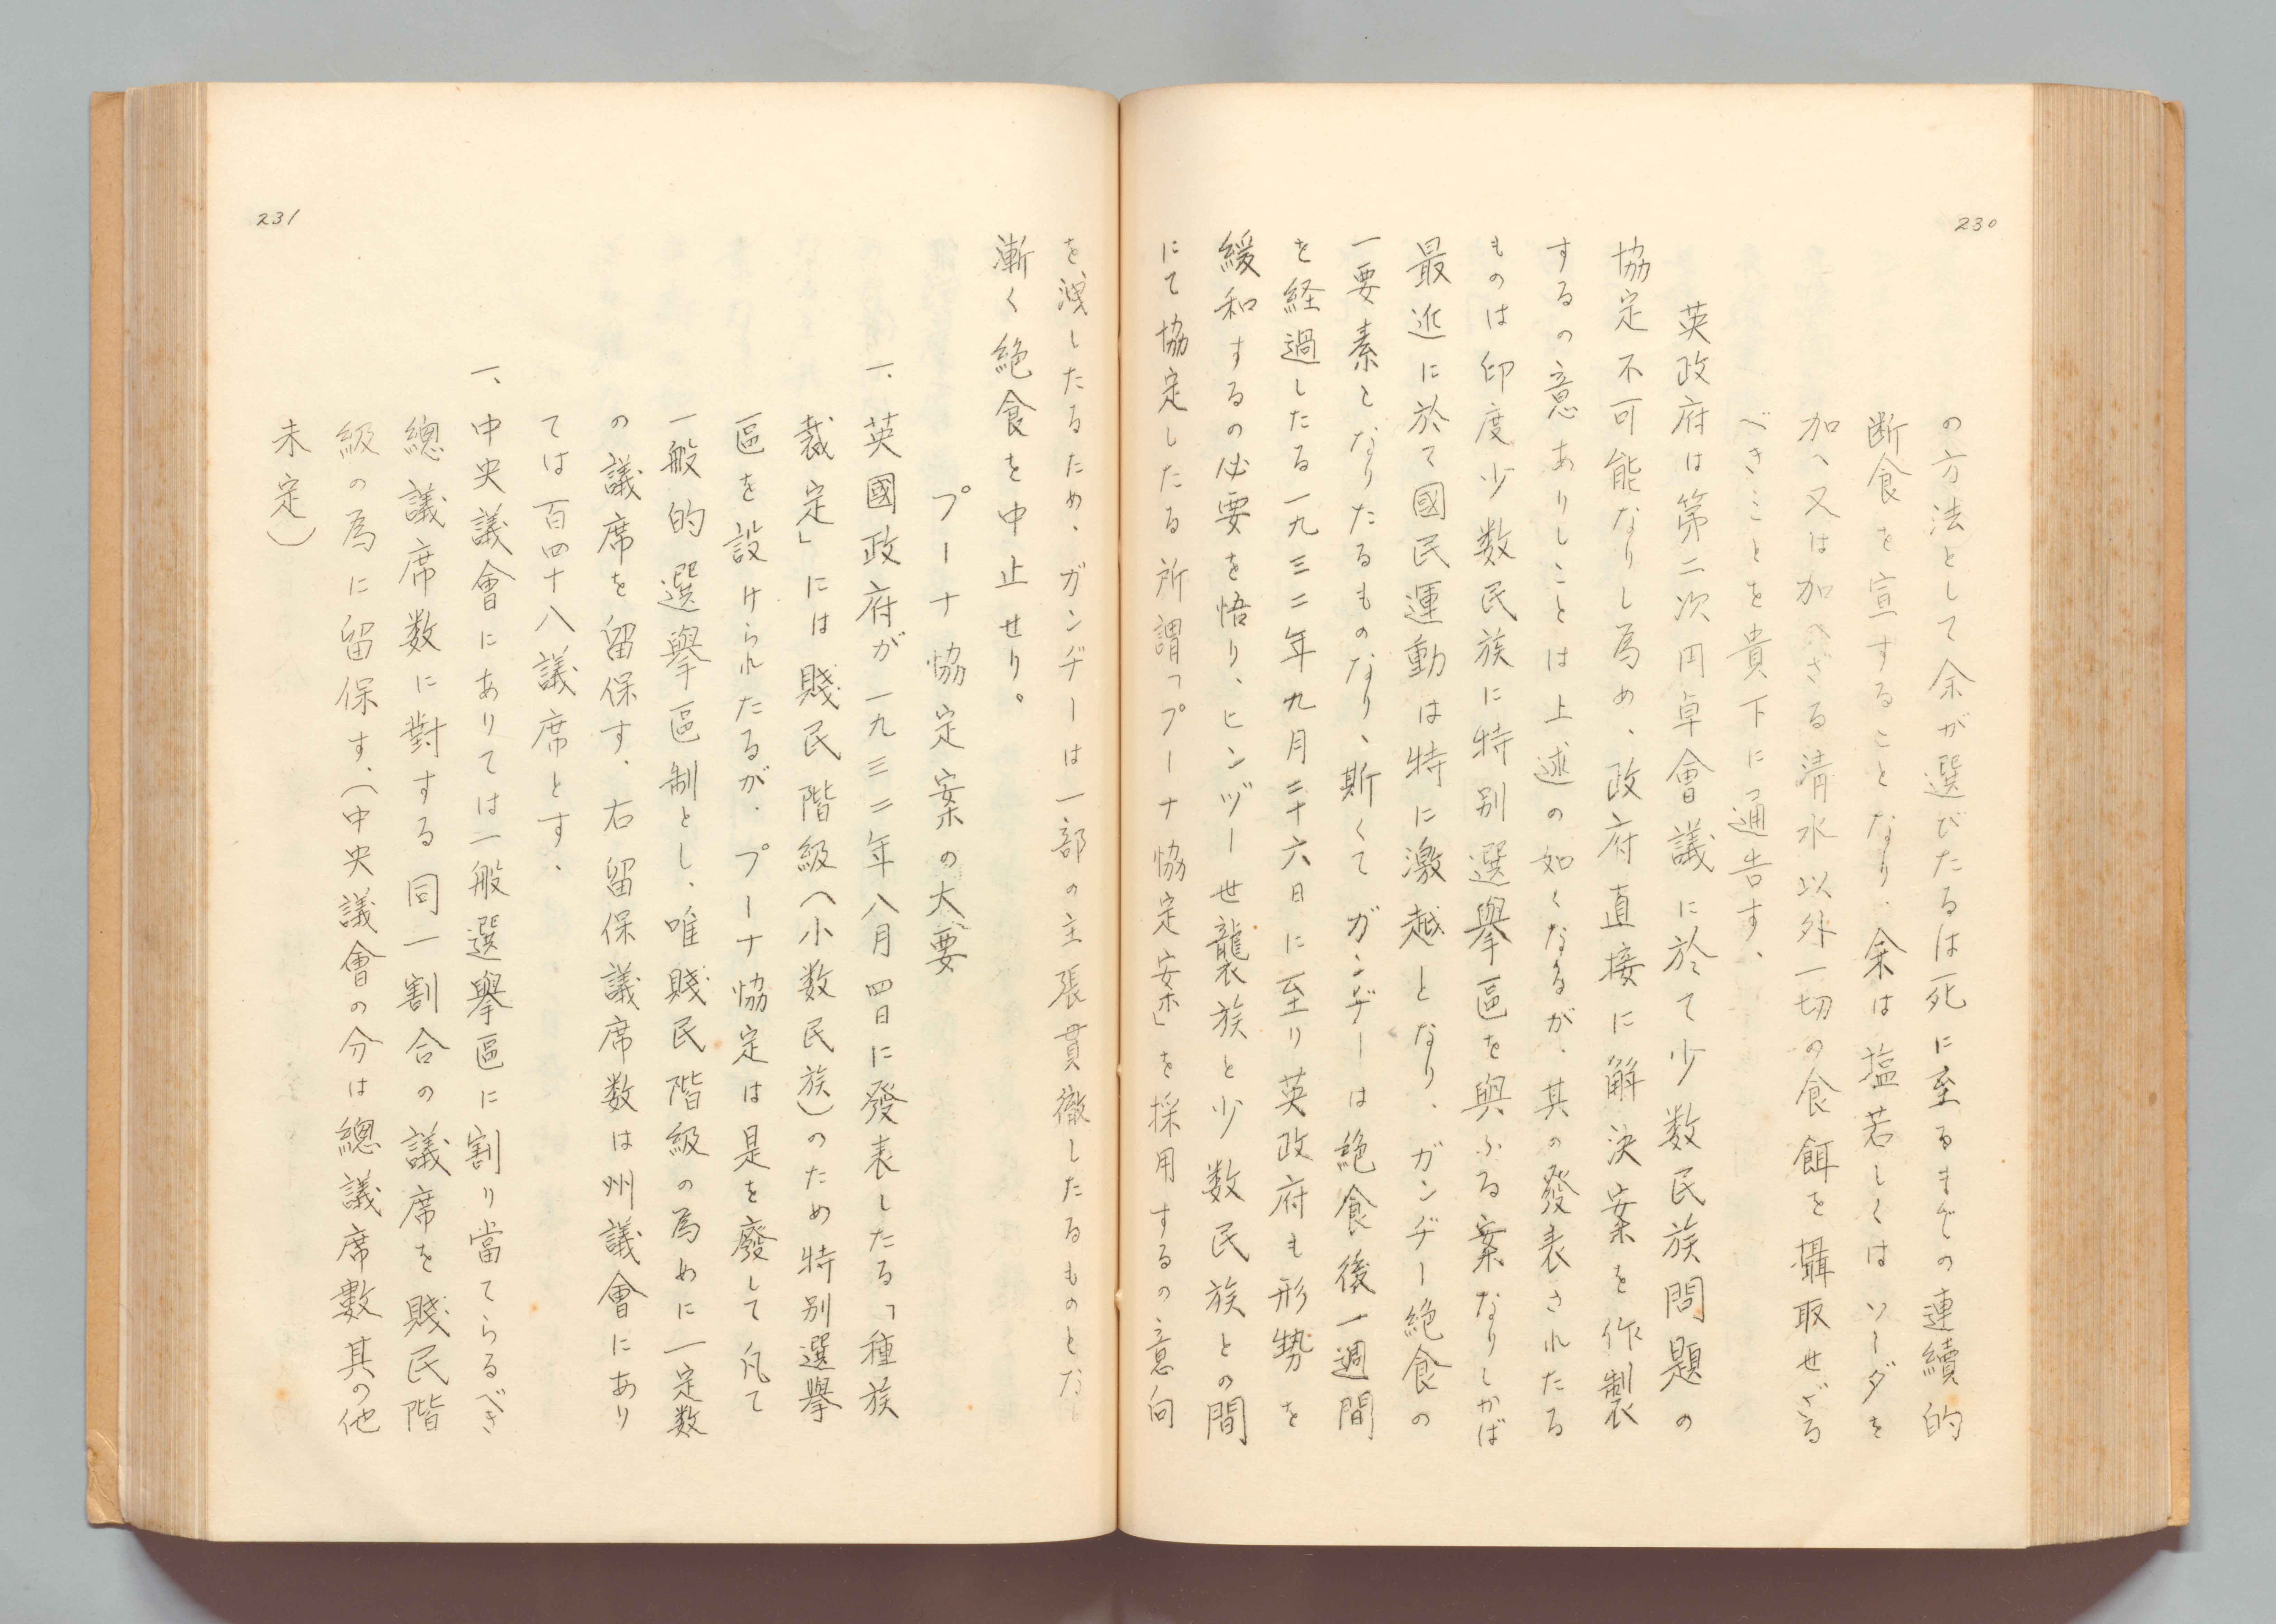 230
の方法として余が選びたるは死に至るまでの連續的
断食を宣することなり、余は塩若しくはソーダを
加へ又は加へざる清水以外一切の食餌を攝取せざる
べきことを貴下に通告す、
英政府は第二次円卓會議に於て少数民族問題の
協定不可能なりし為め、政府直接に解決案を作製
するの意ありしことは上述の如くなるが、其の發表されたる
ものは印度少数民族に特別選擧區を與ふる案なりしかば
最近に於て國民運動は特に激越となり、ガンヂー絶食の
一要素となりたるものなり、斯くてガンヂーは絶食後一週間
を経過したる一九三二年九月二十六日に至り英政府も形勢を
緩和するの必要を悟り、ヒンヅー世襲族と少数民族との間
にて協定したる所謂「プーナ協定案」を採用するの意向
を洩したるため、ガンヂーは一部の主張貫徹したるものとなし
漸く絶食を中止せり。
プーナ協定案の大要
一、英國政府が一九三二年八月四日に發表したる「種族
裁定」には賤民階級(小数民族)のため特別選擧
區を設けられたるが、プーナ協定は是を廢して凡て
一般的選擧區制とし、唯賤民階級の為めに一定数
の議席を留保す、右留保議席数は州議會にあり
ては百四十八議席とす、
一、中央議會にありては一般選擧區に割り當てらるべき
總議席数に對する同一割合の議席を賤民階
級の為に留保す、(中央議會の分は總議席數其の他
未定)
231